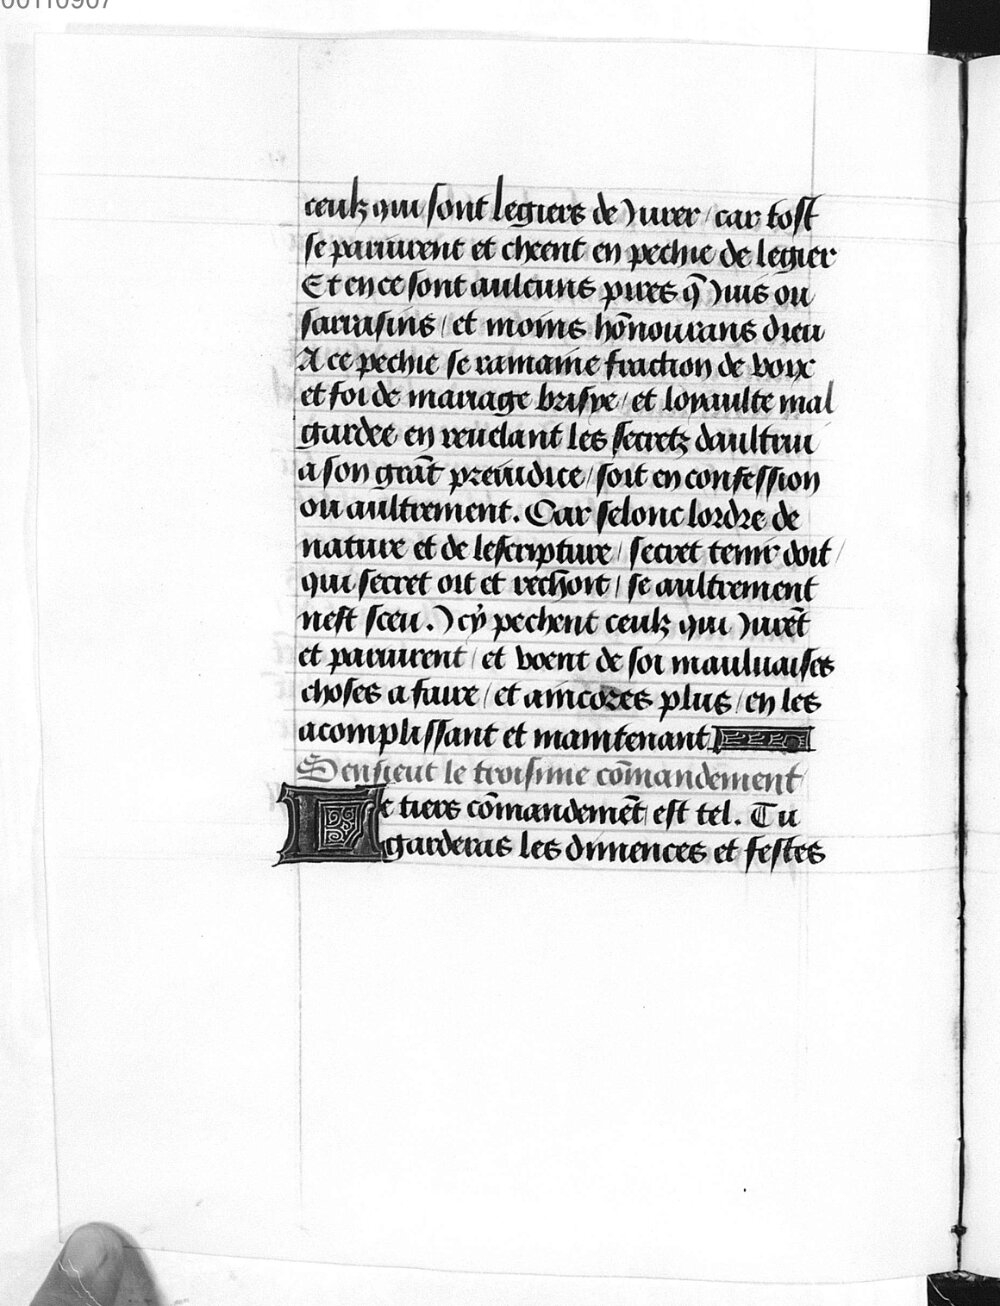 00110907
ceulz qui sont legiers de Jurer / car tost
se pariurent et cheent en pechie de legier
Et en ce sont aulcuns pires q̄ Juis ou
sarrasins / et moins hōnourans dieu
A ce pechie se ramaine fraction de voix
et foi de mariage brisye / et loyaulte mal
gardee en reuelant les secretz daultrui
a son grāt preiudice / soit en confession
ou aultrement. Car selonc lordre de
nature et de lescripture / secret tenir doit /
qui secret oit et rechoit / se aultrement
nest sceu. Jcy pechent ceulz qui Jurēt
et pariurent / et voent de foi mauluaises
choses a faire / et aincores plus / en les
acomplissant et maintenant
Sensieut le troisime cōmandement
Le tiers cōmandemēt est tel. Tu
garderas les dimences et festes